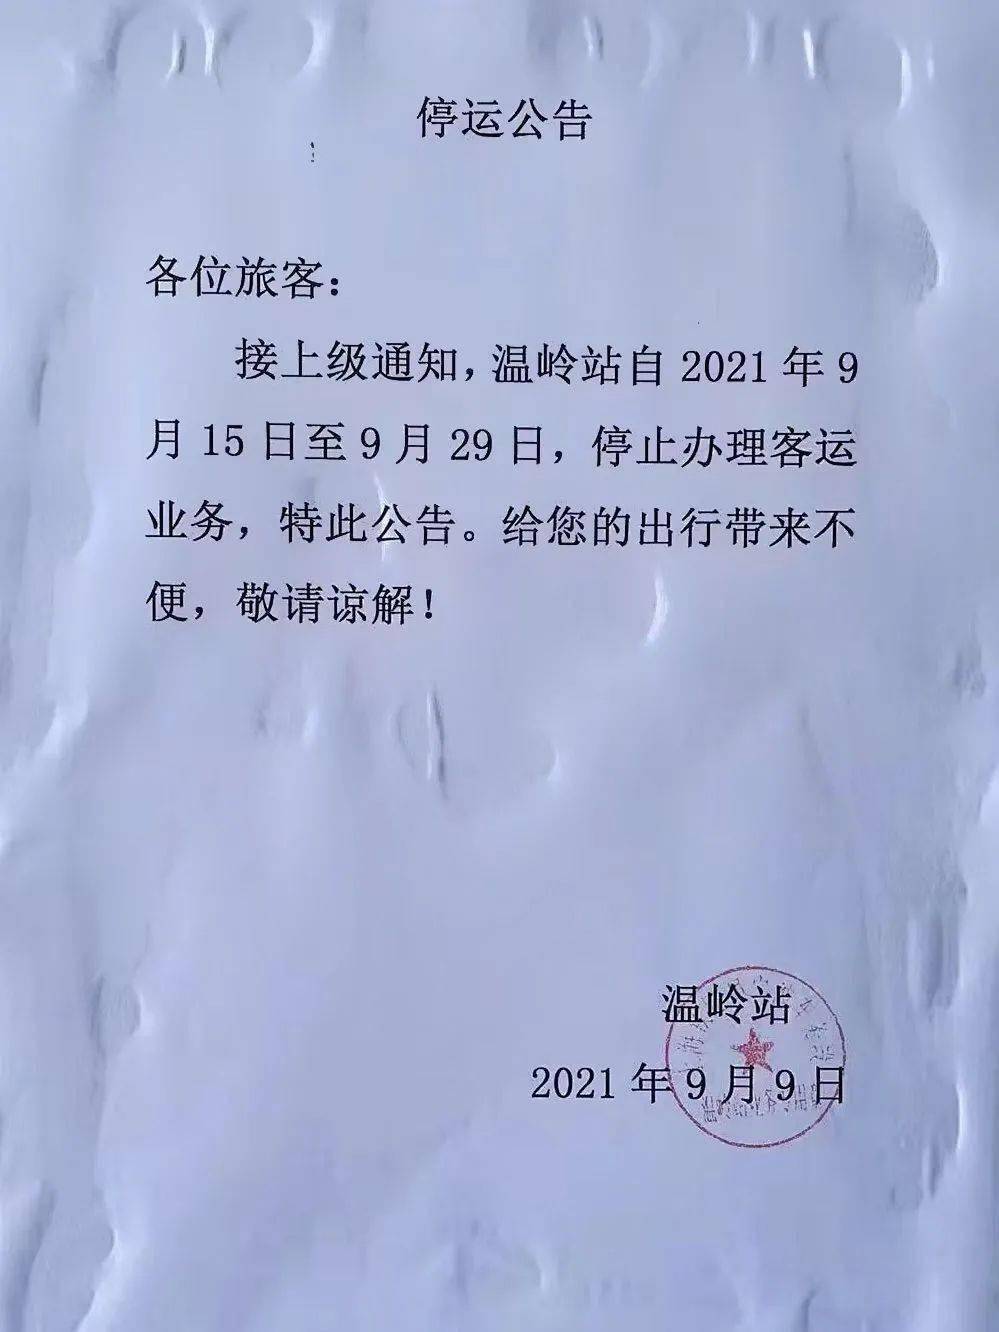 停运公告
各位旅客：
接上级通知，温岭站自 2021 年 9
月 15 日至 9 月 29 日，停止办理客运
业务，特此公告。给您的出行带来不
便，敬请谅解！
温岭站
2021 年 9 月 9 日
温岭站业务专用章